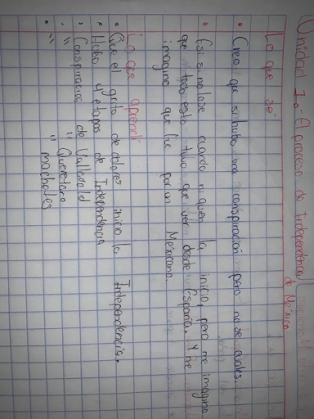 Unidad 1. El proceso de Independencia
de México
Lo que sé
• Creo que si hubo una conspiración pero no se cuales.
• Esi si no la se cuando ni quien la inicio, pero me imagino
que todo esto tuvo que ver desde España. Y me
imagino que fue por un Mexicano.
Lo que aprendí
• Que el grito de dolores inicio la Independencia.
• Hubo 4 etapas de Independencia
• Conspiración de Valladolid
• " " Querétaro
• " " machetes